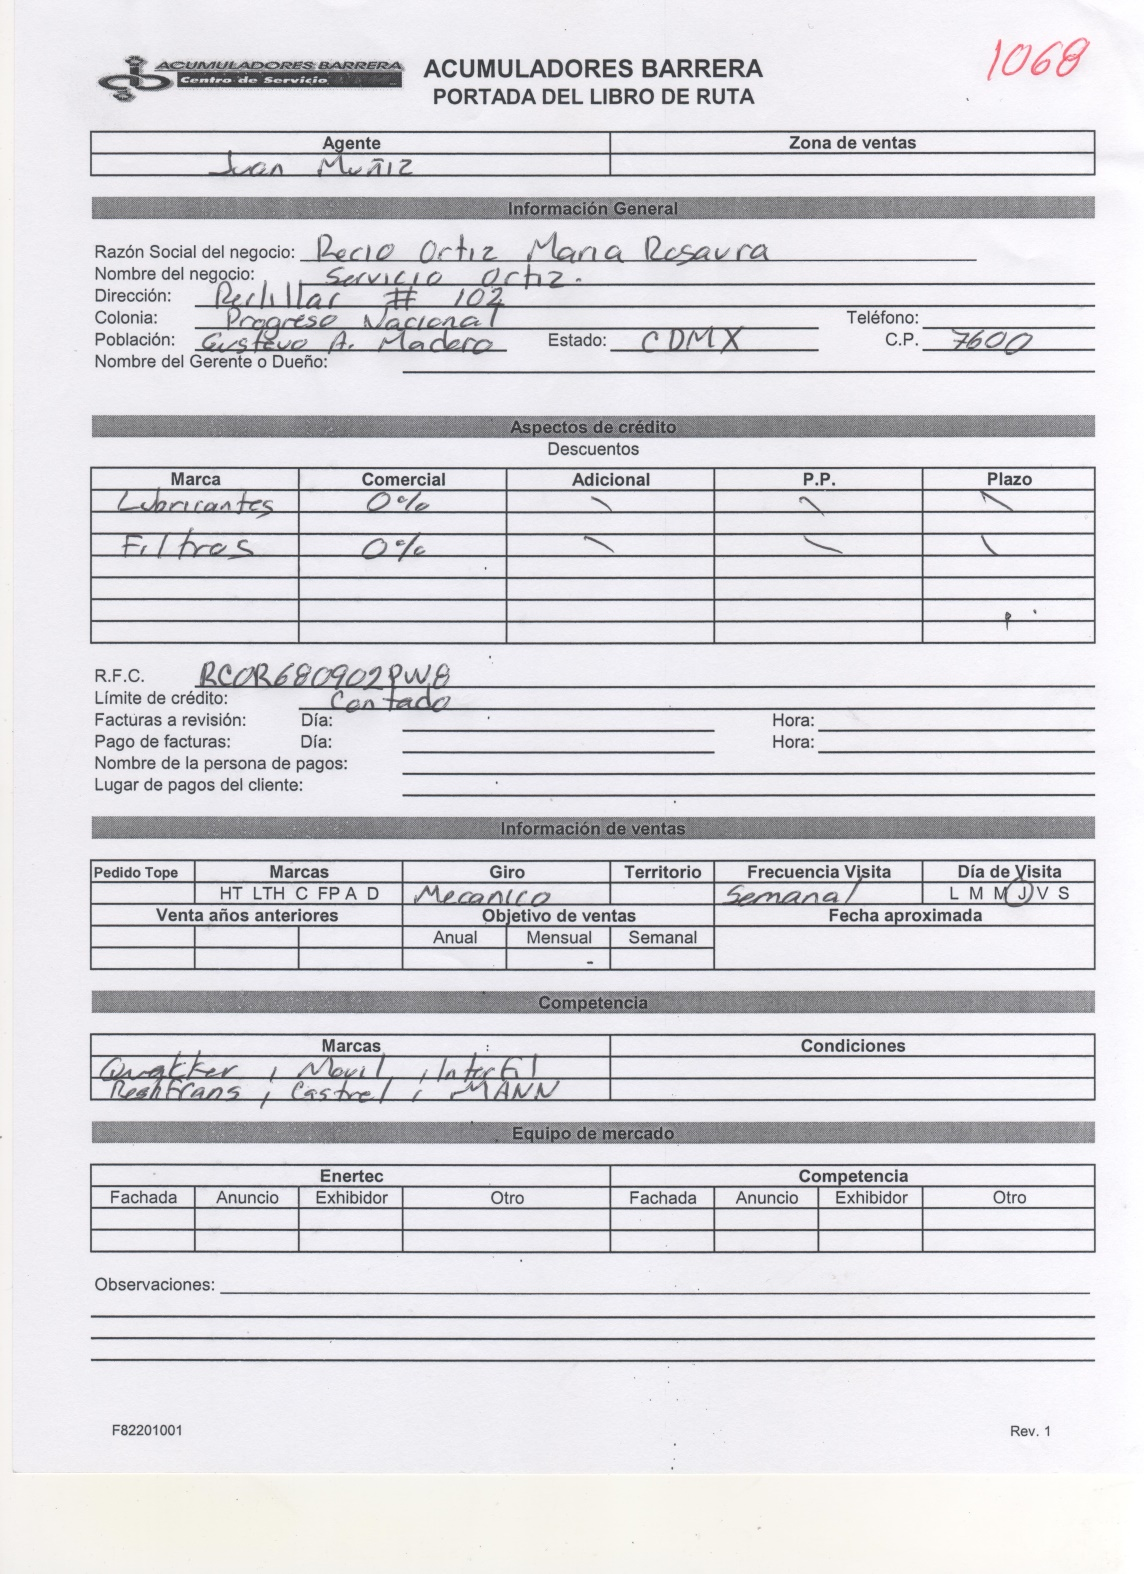 1068
ACUMULADORES BARRERA
Centro de Servicio
ACUMULADORES BARRERA
PORTADA DEL LIBRO DE RUTA
Agente Zona de ventas
Juan Muñiz
Información General
Razón Social del negocio: Recio Ortiz Maria Rosaura
Nombre del negocio: Servicio Ortiz.
Dirección: # 102
Colonia: Progreso Nacional Teléfono:
Población: Gustavo A. Madero Estado: CDMX C.P. 7600
Nombre del Gerente o Dueño:
Aspectos de crédito
Descuentos
Marca Comercial Adicional P.P. Plazo
Lubricantes 0% \ \ \
Filtros 0% \ \ \
R.F.C. RCOR680902PW8
Límite de crédito: Contado
Facturas a revisión: Día: Hora:
Pago de facturas: Día: Hora:
Nombre de la persona de pagos:
Lugar de pagos del cliente:
Información de ventas
Pedido Tope Marcas Giro Territorio Frecuencia Visita Día de Visita
HT LTH C FP A D Mecanico Semanal L M M J V S
Venta años anteriores Objetivo de ventas Fecha aproximada
Anual Mensual Semanal
-
Competencia
Marcas Condiciones
, Movil , Interfil
, Castrol , MANN
Equipo de mercado
Enertec Competencia
Fachada Anuncio Exhibidor Otro Fachada Anuncio Exhibidor Otro
Observaciones:
F82201001 Rev. 1